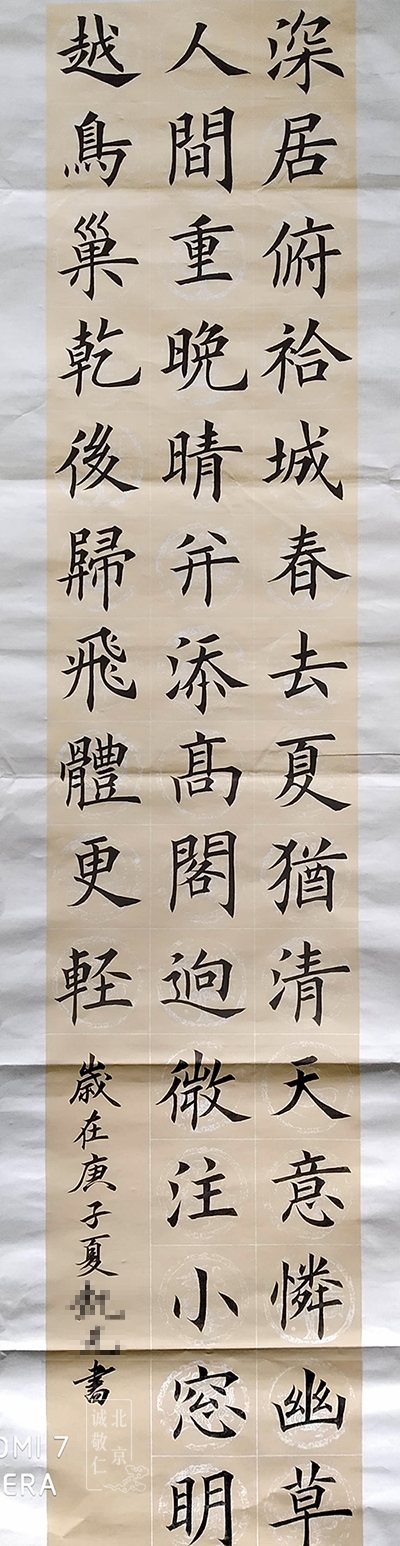 深居俯袷城春去夏猶清天意憐幽草
人間重晚晴并添髙閣逈微注小窓明
越鳥巢乾後歸飛體更軽
歲在庚子夏書
北京
诚敬仁
OMI 7
ERA